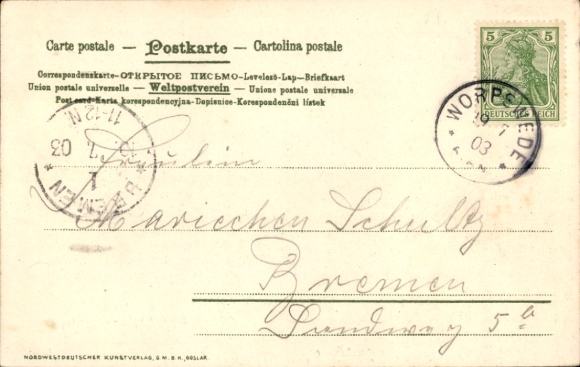 Carte postale — Postkarte — Cartolina postale
Correspondenzkarte-ОТКРЫТОЕ ПИСЬМО-Levelező-Lap-Briefkaart
Union postale universelle — Weltpostverein — Unione postale universale
Post card-Karta korespondencyjna-Dopisnice-Korespondenční lístek
5 5
DEUTSCHES REICH
WORPSWEDE
19 7
03
BREMEN
1
7. 03
11-12 N.
Fräulein
Mariechen Schultz
Bremen
Landweg 5a
NORDWESTDEUTSCHER KUNSTVERLAG, G.M.B.H., GOSLAR.